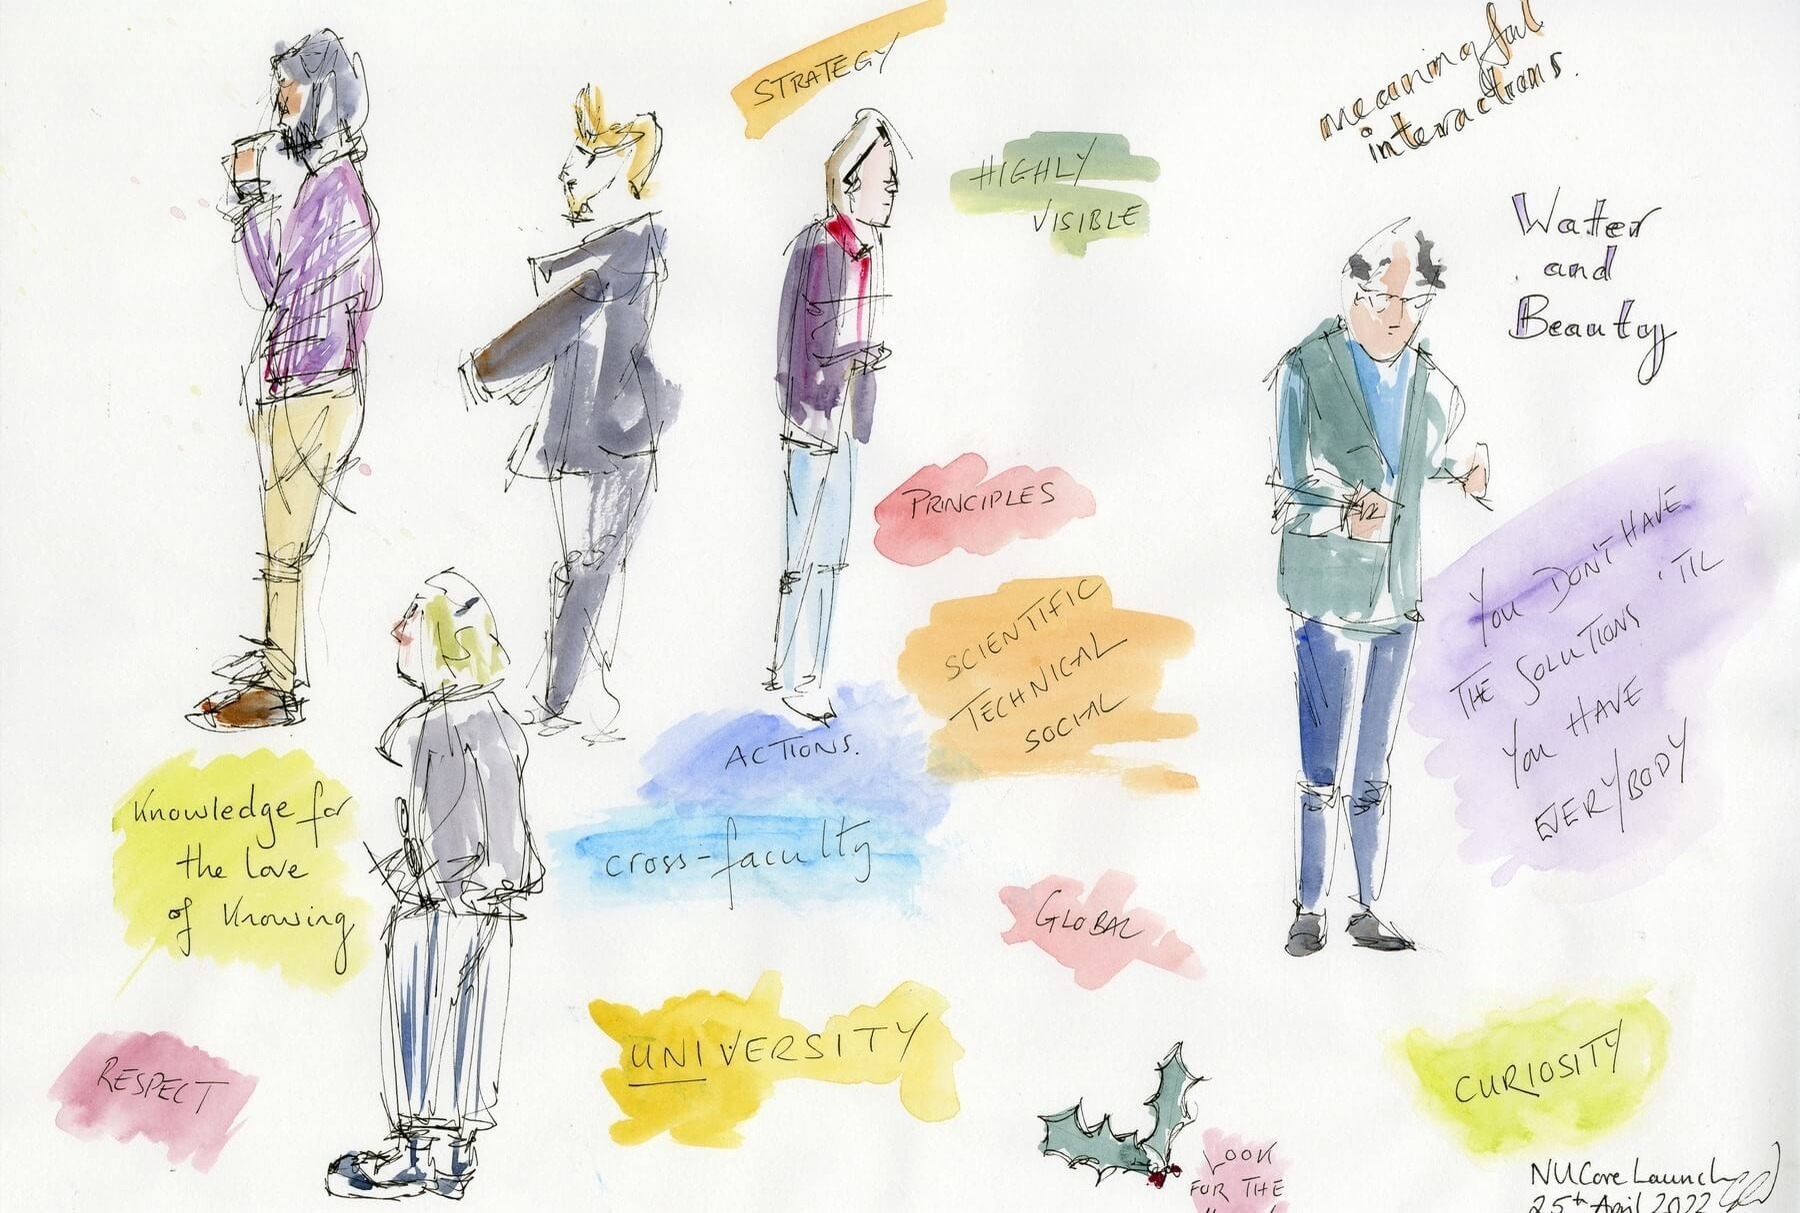 STRATEGY
HIGHLY
VISIBLE
meaningful
interactions.
Water
and
Beauty
PRINCIPLES
SCIENTIFIC
TECHNICAL
SOCIAL
YOU DON'T HAVE
THE SOLUTIONS 'TIL
YOU HAVE
EVERYBODY
ACTIONS.
cross-faculty
Knowledge for
the love
of Knowing
GLOBAL
UNIVERSITY
RESPECT
CURIOSITY
LOOK
FOR THE
NUCore Launch
25th April 2022